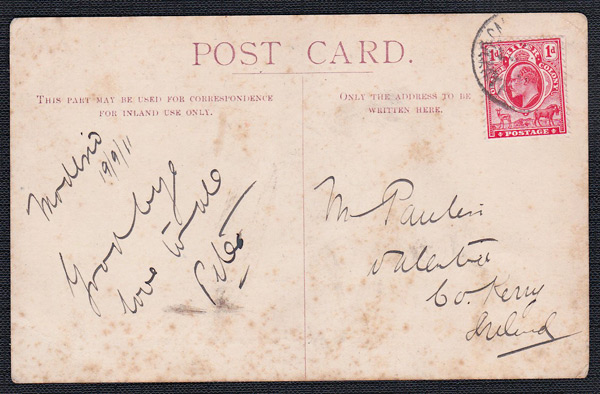 POST CARD.
THIS PART MAY BE USED FOR CORRESPONDENCE
FOR INLAND USE ONLY.
ONLY THE ADDRESS TO BE
WRITTEN HERE.
1d 1d
ORANGE RIVER COLONY
POSTAGE
19/9/11
Good bye
love to all
Mr
Co. Kerry
Ireland